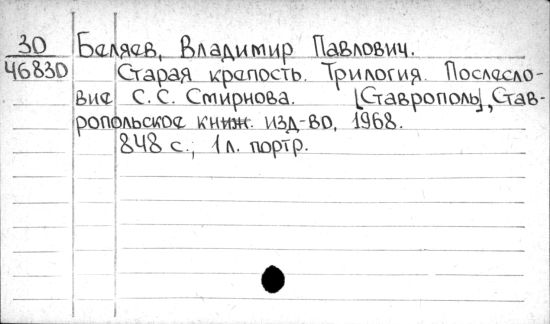 30 Беляев, Владимир Павлович.
46830 Старая крепость. Трилогия. Послесло-
вие С. С. Смирнова. [Ставрополь], Став-
ропольское книж. изд-во, 1968.
848 с., 1 л. портр.